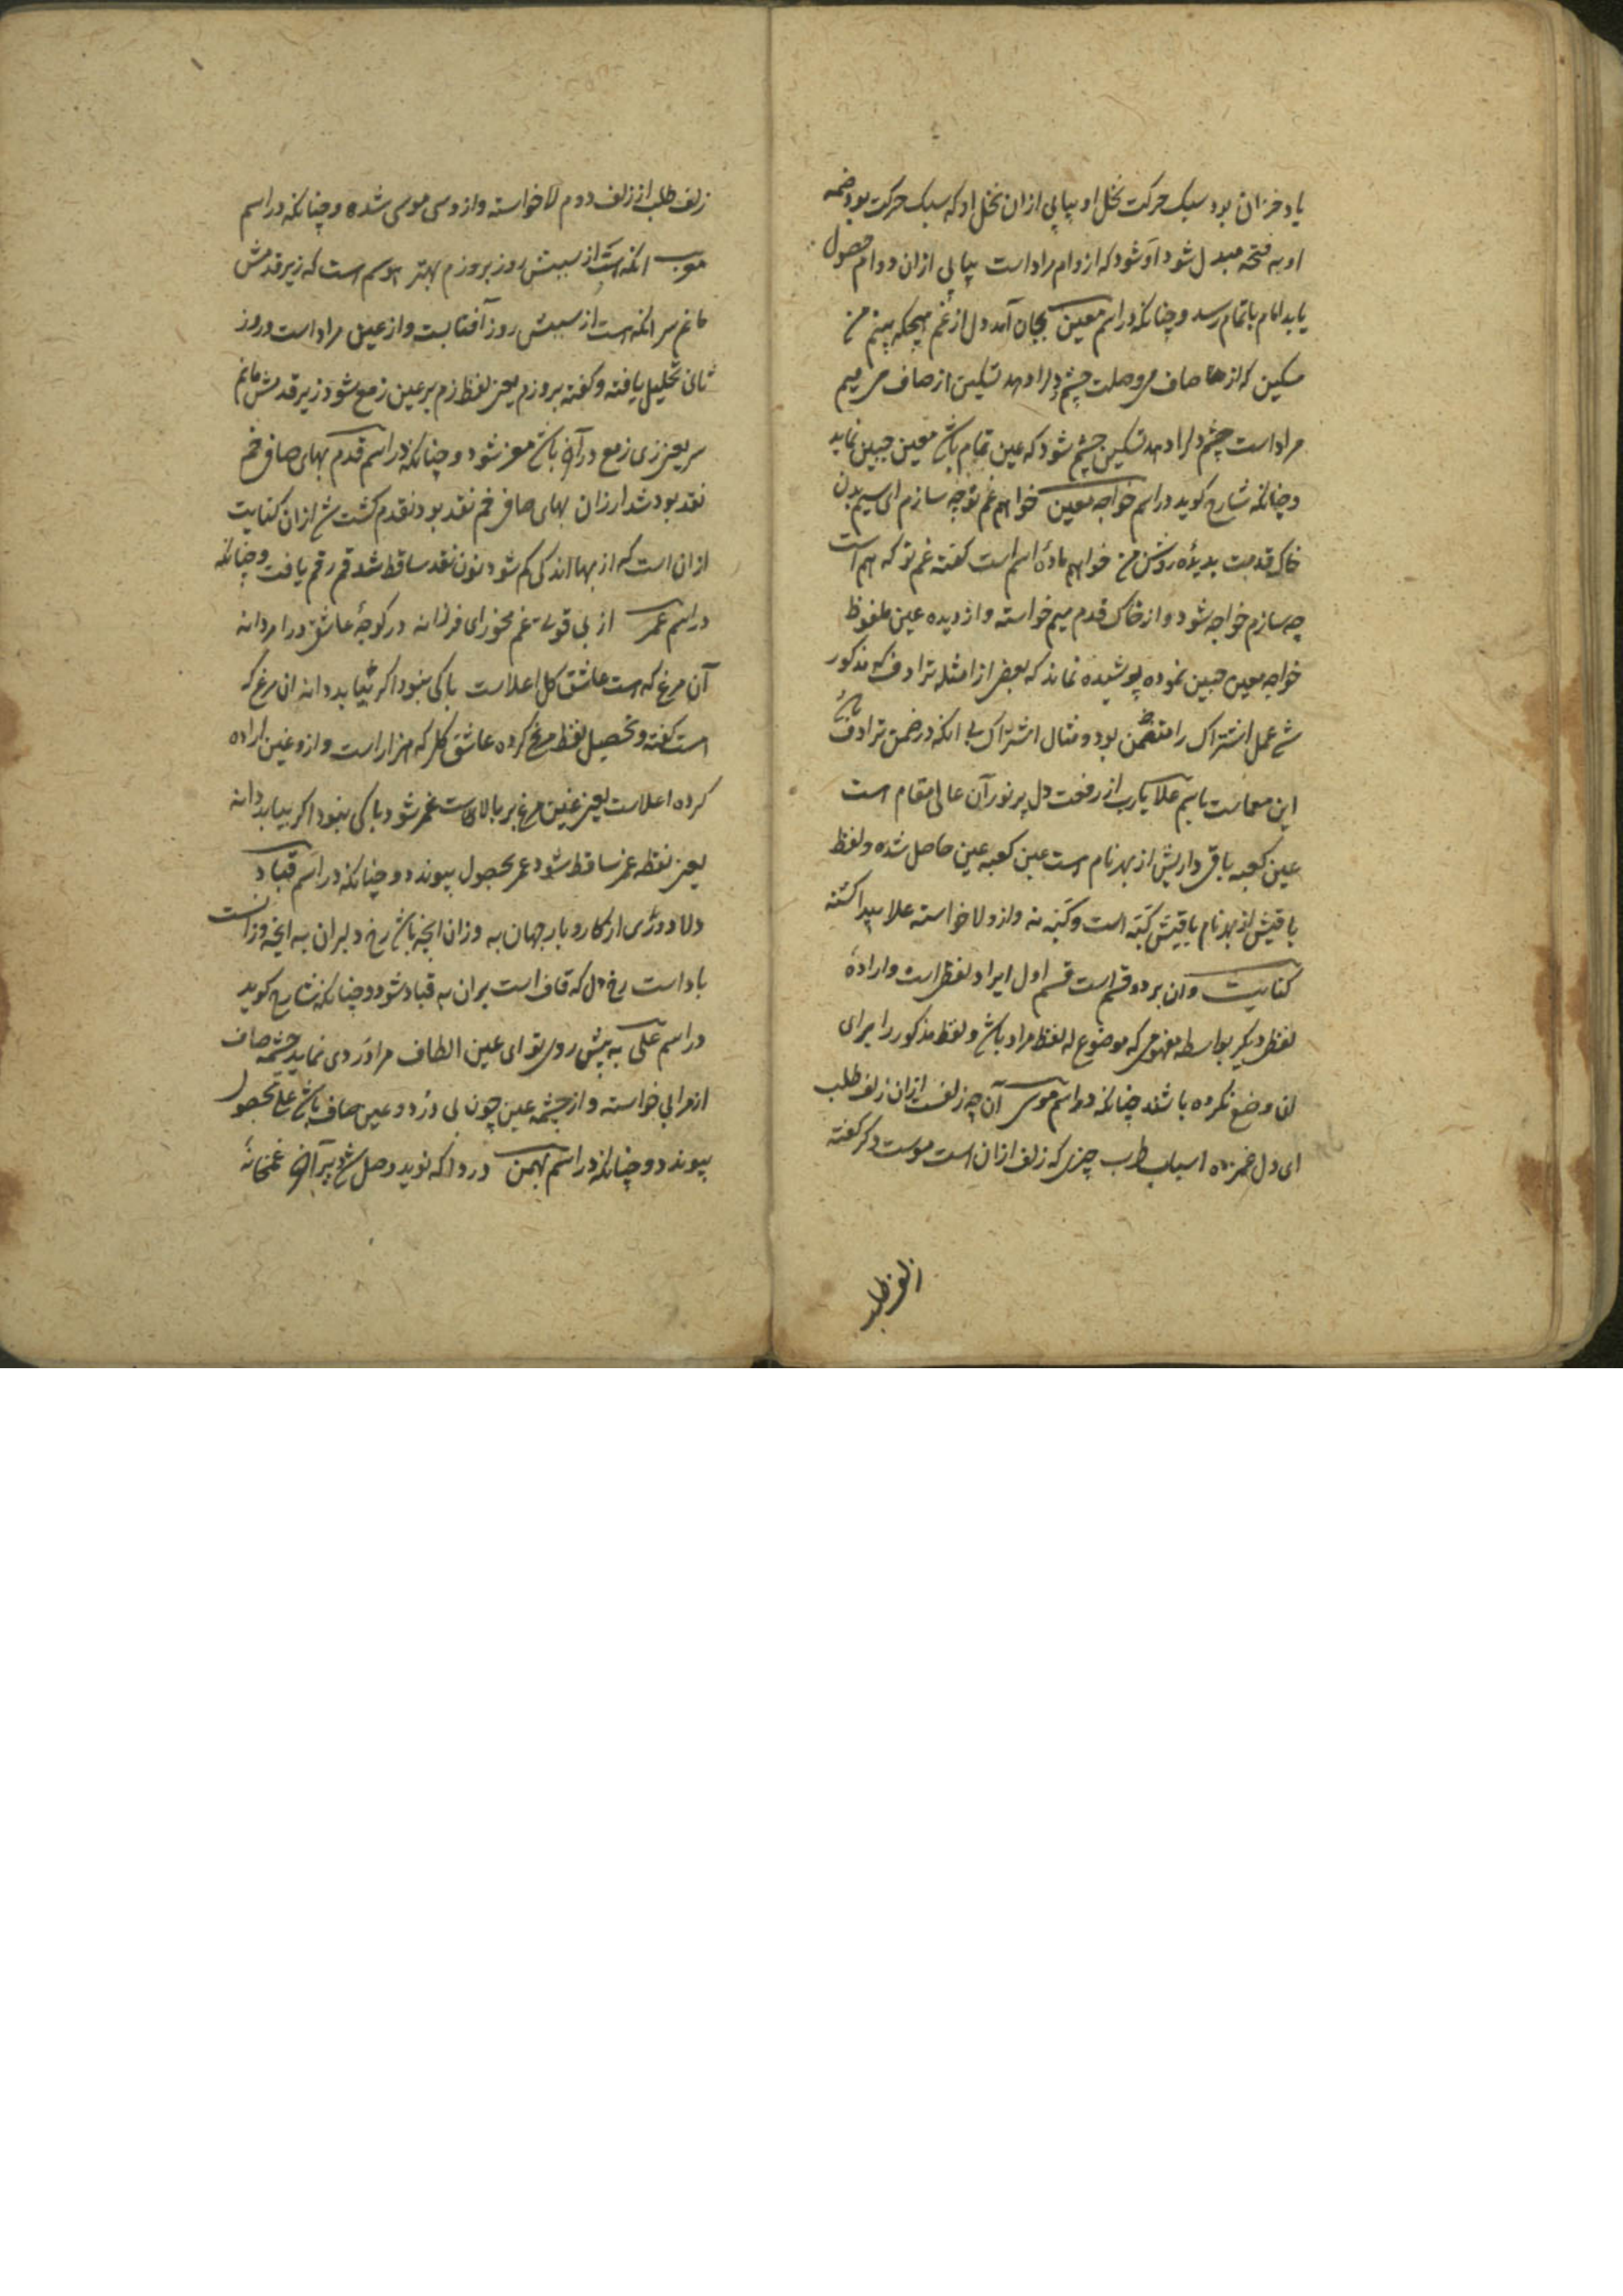 یاد خزان بود سبک حرکت نخل او بیاپی ازان نخل او که سبک حرکت بود ضمه
او به فتحه مبدل شود اَو شود که از وام مراد است بیاپی ازان دوام حصول
یابد امام باتمام رسد و چنانکه در اسم معین بجان آمد دل از غم هیچکه بینم من
مسکین که از صاف می وصلت چشم دلرا دهد تسکین از صاف می میم
مراد است چشم دلرا دهد تسکین چشم شود که عین تمام باشد معین جبین نماید
و چنانکه شارح کوید در اسم خواجه معین خواهم غم تو چه سازم ای سیم بدن
خاک قدمت بدیده روشن من خواهم ماده اسم است کفته غم تو که هم است
چه سازم خواجه شود و از خاک قدم میم خواسته و از دیده عین ملفوظ
خواجه معین جبین نموده پوشیده نماند که بعض از امثله ترادف که مذکور
شد عمل اشتراک را متضمن بود و مثال اشتراک بی انکه در ضمن ترادف باشد
این معماست باسم علا یارب از رفعت دل پر نور آن عالی مقام است
عین کعبه باقی داریش از بهر نام است عین کعبه عین حاصل شده و لفظ
باقیش از بهر نام باقیش کَبَه است و کَبَه نه و ازو لا خواسته علا پیدا کشته
کنایت وان بر دو قسم است قسم اول ایراد لفظ است و اراده
لفظ دیکر بواسطه مفهومی که موضوع له لفظ مراد باشد و لفظ مذکور را برای
ان وضع نکرده باشند چنانکه در اسم موسی آن چه زلفست ازان زلف طلب
ای دل غمزده اسباب طرب چیزی که زلف ازان است موست دکر کفته
زلف طلب
زلف طلب از زلف دوم لا خواسته و ازو سی موسی شده و چنانکه در اسم
انکه است از سببش روز بروزم بهتر اوسم است که زیر قدمش
مانم سر انکه است از سببش روز آفتابست و از عین مراد است و روز
ثانی تحلیل یافته و کفته بروزم یعنی لفظ زم بر عین زمع شود زیر قدمش مانم
سر یعنی زی زمع در آخر باشد معز شود و چنانکه در اسم قدم بهای صاف خم
نقد بود شد ارزان بهای صاف خم نقد بود نقدم کشت شد ازان کنایت
ازان است که از بها اندکی کم شود نون نقد ساقط شد قم رقم یافت و چنانکه
در اسم عمر از بی قوت غم مخور ای فرزانه در کوچه عاشق درا مردانه
آن مرغ که است عاشق کل اعلاست باکی نبود اکر نیابد دانه ان مرغ که
است کفته و تحصیل لفظ مرغ کرده عاشق کل که هزار است و ازو غین اراده
کرده اعلاست یعنی غین مرغ بر بالاست غمر شود باکی نبود اکر نیابد دانه
یعنی نقطه غمر ساقط شود عمر بحصول پیوندد و چنانکه در اسم قباد
دلا دوری از کار و بار جهان به وزان انچه باشد رخ دلبران به انچه وزانست
باد است رخ دل که قاف است بران به قباد شود و چنانکه شارح کوید
در اسم علی به پیش روی تو ای عین الطاف مرا دَر دی نماید چشمه صاف
از مرا لی خواسته و از چشمه عین چون لی دَرْد و عین صاف باشد علی بحصول
پیوندد و چنانکه در اسم بهمن دردا که نوید وصل شد پیرآهن غمخانه